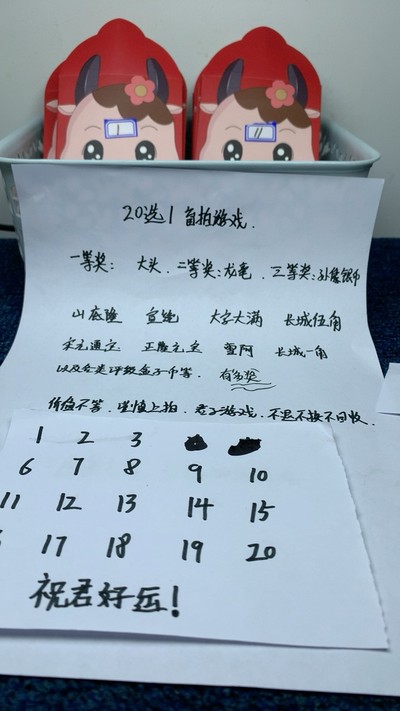 1 11
20选1自拍游戏.
一等奖: 大头. 二等奖:龙毫. 三等奖:孙像银币
山底隆 宣统 大字大满 长城伍角
宋元通宝 正隆元宝 雷阿 长城一角
以及各类评级盒子币等. 有多奖
价值不等. 谨慎上拍. 君子游戏. 不退不换不回收.
1 2 3
6 7 8 9 10
11 12 13 14 15
17 18 19 20
祝君好运!